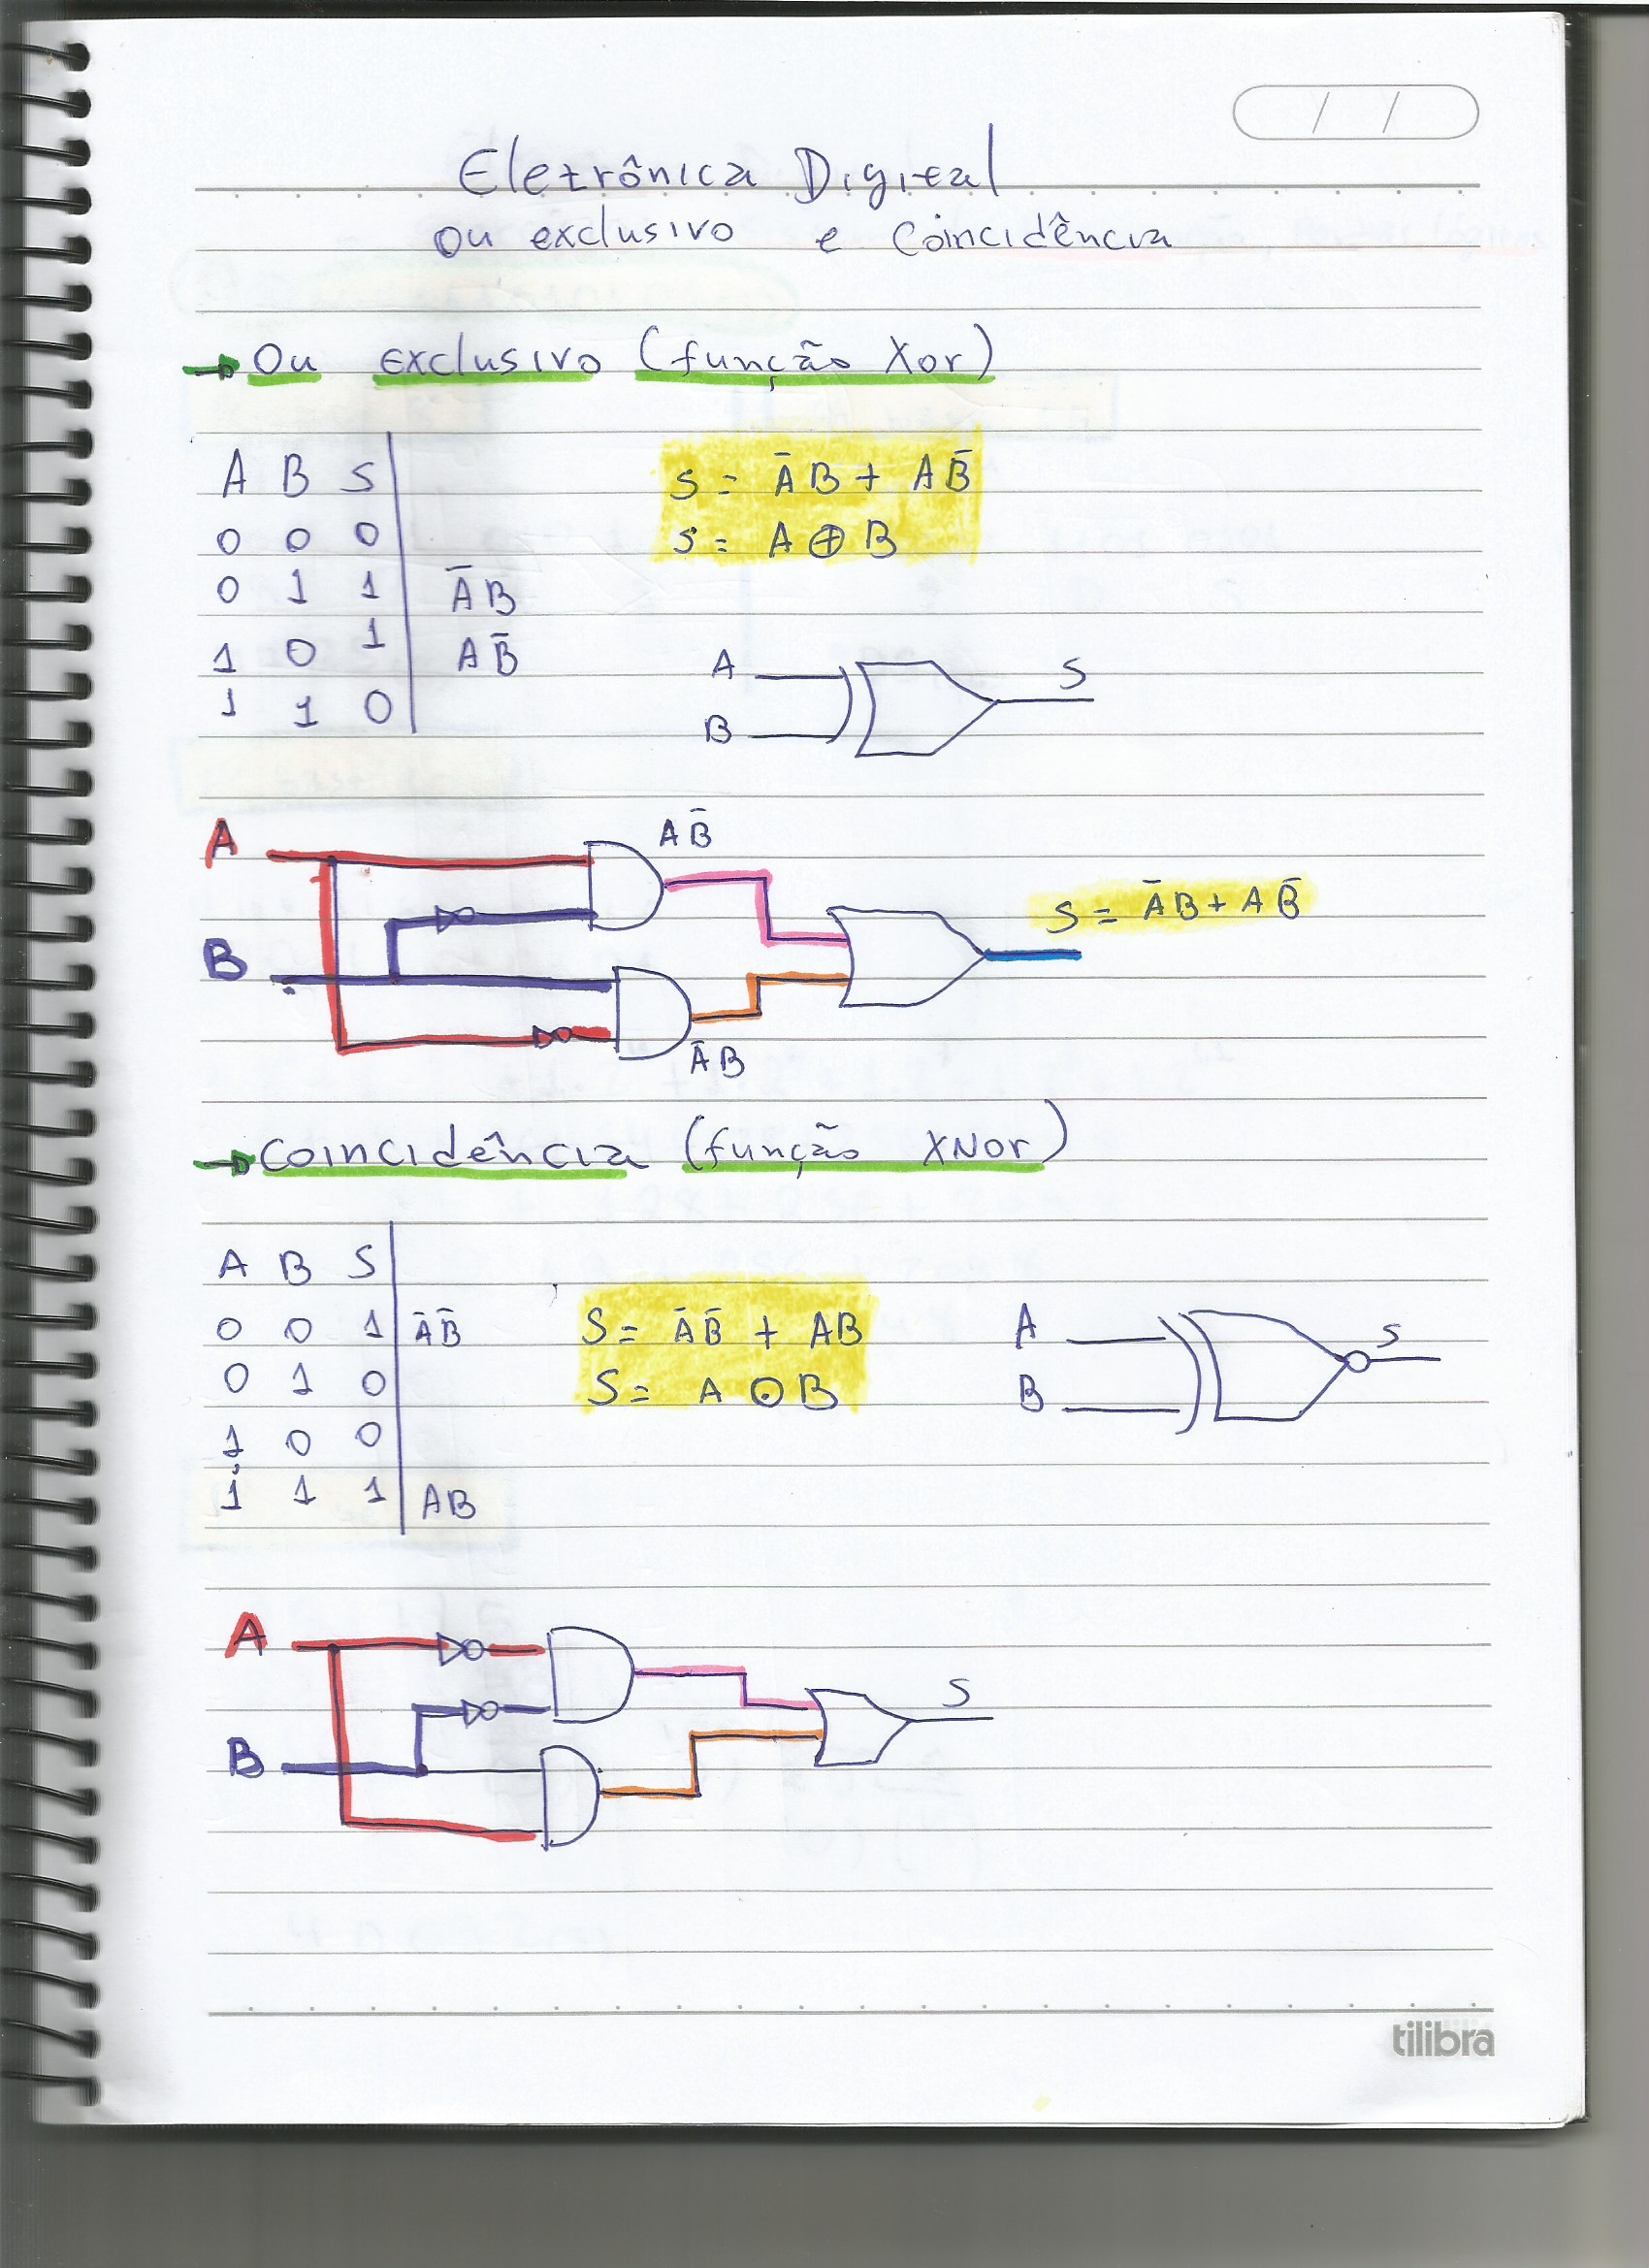 / /
Eletrônica Digital
Ou exclusivo e Coincidência
Ou exclusivo (função Xor)
A B S
0 0 0
0 1 1 A̅B
1 0 1 AB̅
1 1 0
S = A̅B + AB̅
S = A ⊕ B
A
B
S
A
B
AB̅
A̅B
S = A̅B + AB̅
Coincidência (função XNor)
A B S
0 0 1 A̅B̅
0 1 0
1 0 0
1 1 1 AB
S = A̅B̅ + AB
S = A ⊙ B
A
B
S
A
B
S
tilibra